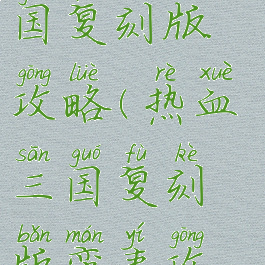 国复刻版
gōng lüè rè xuè
攻略(热血
sān guó fù kè
三国复刻
bǎn mán yí gōng
版蛮夷攻